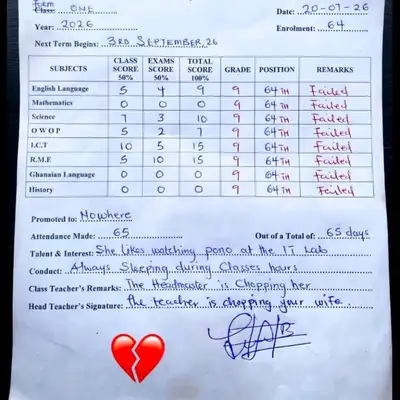 Form
Class: ONE Date: 20-07-26
Year: 2026 Enrolment: 64
Next Term Begins: 3RD SEPTEMBER, 26
SUBJECTS CLASS SCORE 50% EXAMS SCORE 50% TOTAL SCORE 100% GRADE POSITION REMARKS
English Language 5 4 9 9 64TH Failed
Mathematics 0 0 0 9 64TH Failed
Science 7 3 10 9 64TH Failed
O W O P 5 2 7 9 64TH Failed
I.C.T 10 5 15 9 64TH Failed
R.M.E 5 10 15 9 64TH Failed
Ghanaian Language 0 0 0 9 64TH Failed
History 0 0 0 9 64TH Failed
Promoted to: Nowhere
Attendance Made: 65 Out of a Total of: 65 days
Talent & Interest: She likes watching pono at the IT Lab
Conduct: Always Sleeping during Classes hours
Class Teacher's Remarks: The Headmaster is Chopping her
Head Teacher's Signature: the teacher is chopping your wife.